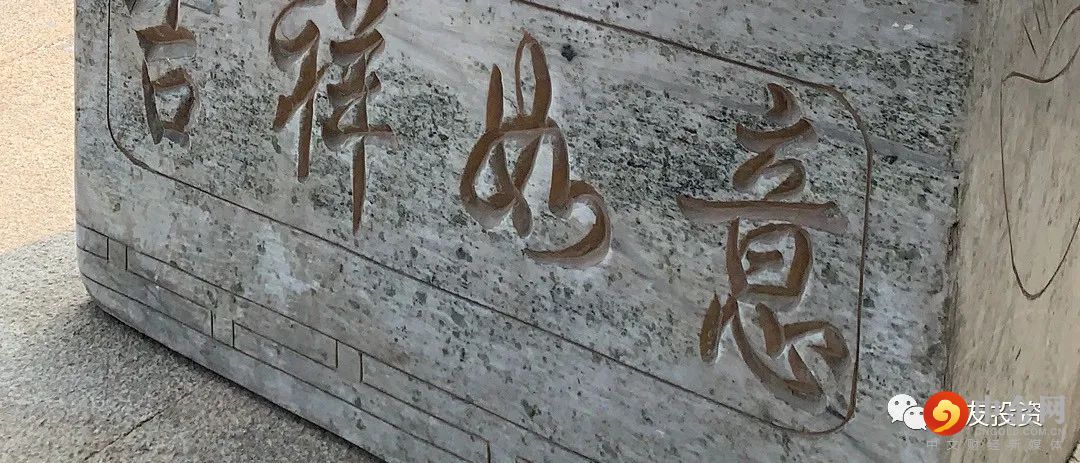 吉祥如意
友投资
中文财经新媒体